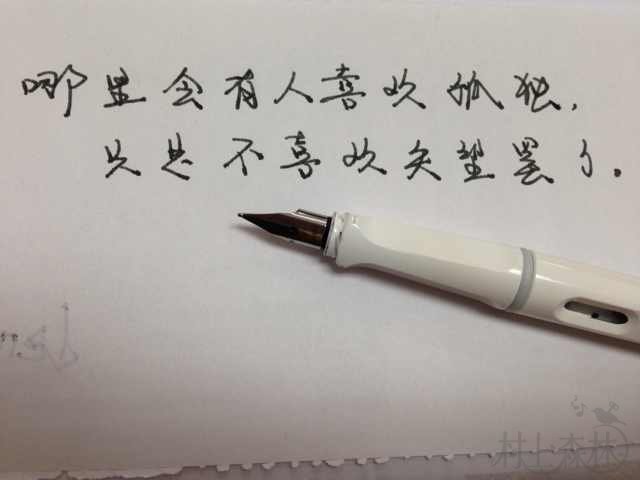 哪里会有人喜欢孤独,
只是不喜欢失望罢了.
村上森林